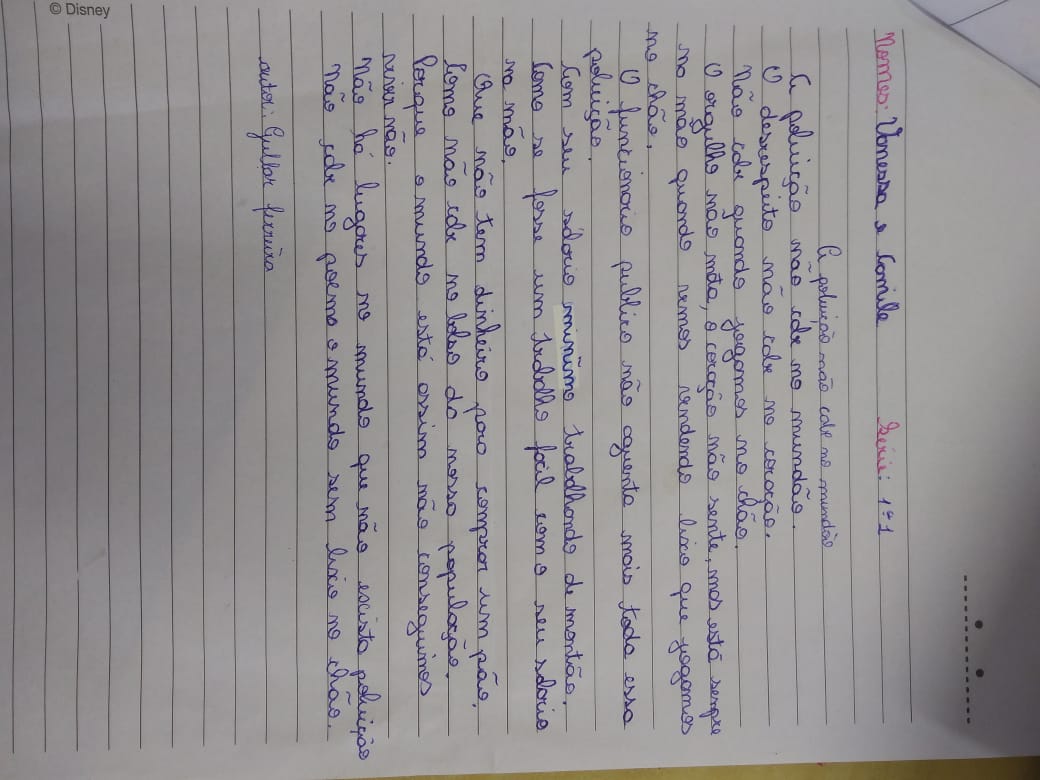 Nomes: Vanessa e Camile Série: 1º1
A poluição não cabe no mundão
A poluição não cabe no mundão.
O desrespeito não cabe no coração.
Não cabe quando jogamos no chão.
O orgulho não mata, o coração não sente, mas está sempre
na mão quando vemos vendendo lixo que jogamos
no chão.
O funcionario publico não aguenta mais toda essa
poluição.
Com seu salario minimo trabalhando de montão.
Como se fosse um trabalho fácil com o seu salario
na mão.
Que não tem dinheiro para comprar um pão.
Como não cabe no bolso da nossa população.
Porque o mundo está assim não conseguimos
viver não.
Não há lugares no mundo que não exista poluição
Não cabe no poema o mundo sem lixo no chão.
autor: Gullar ferreira
© Disney